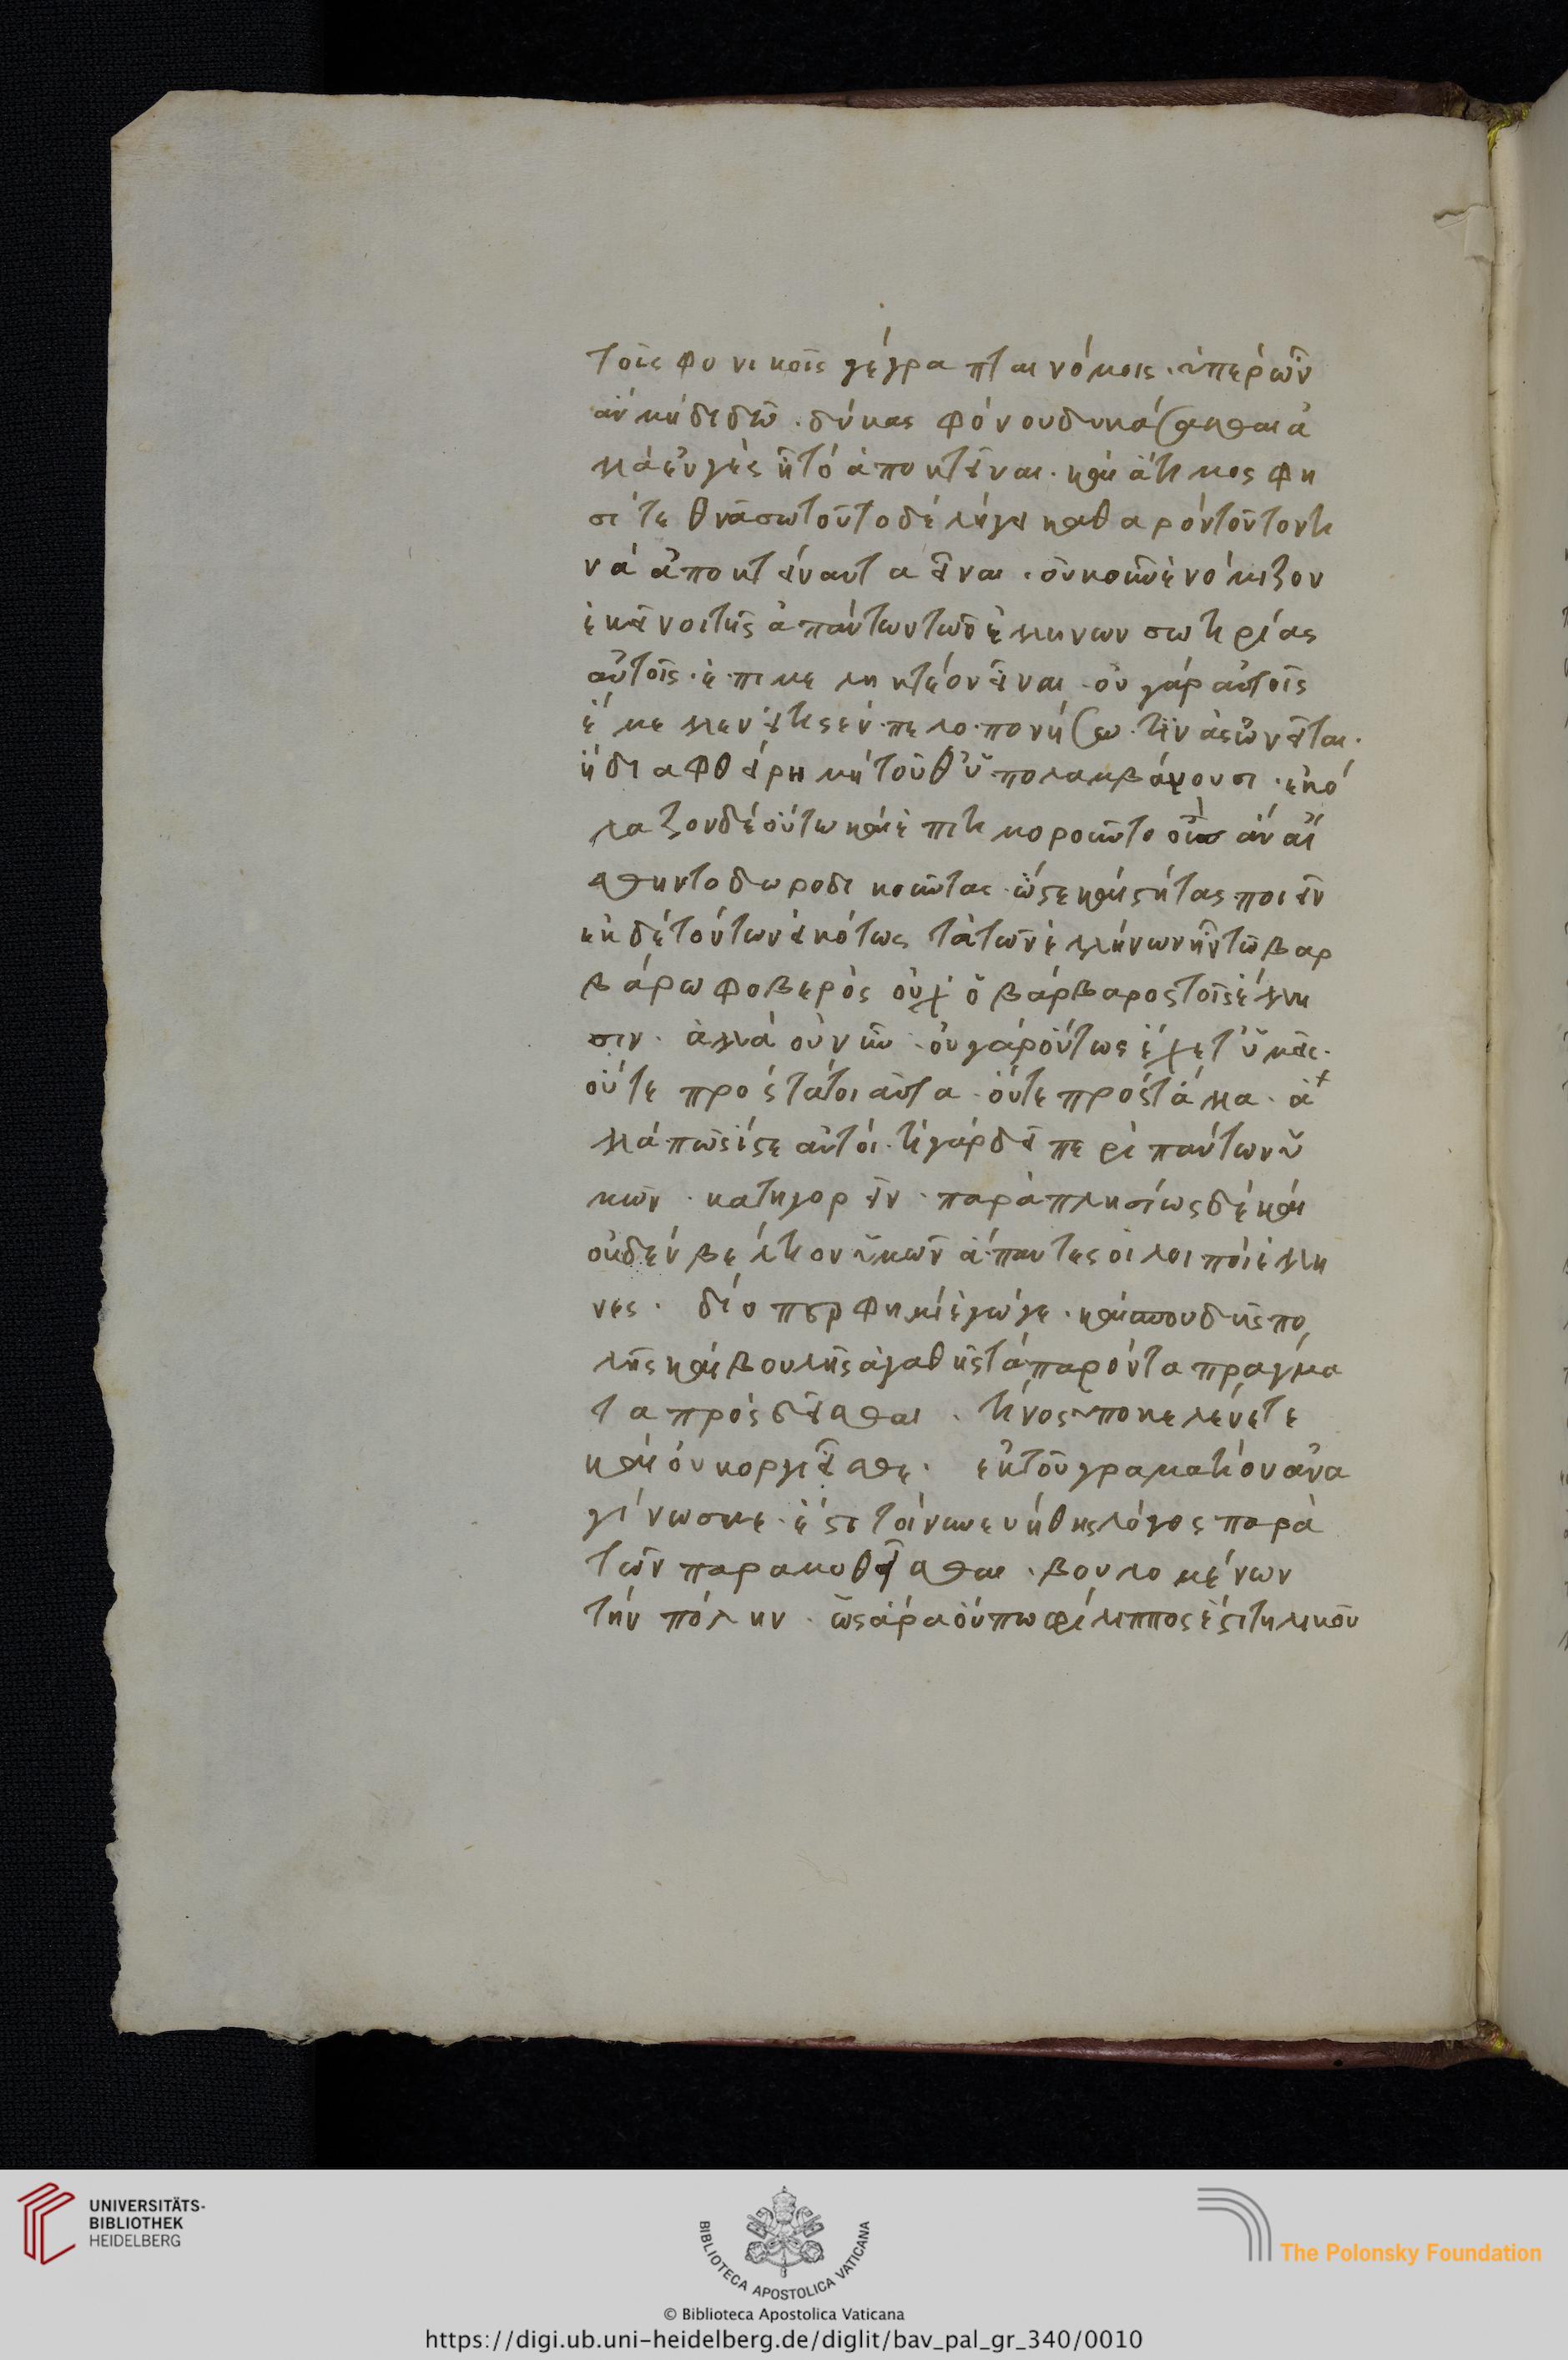 τοῖς φονικοῖς γέγραπται νόμοις. ὑπὲρ ὧν
ἂν μὴ διδῶ. δίκας φόνου δικάσασθαι ἀ
λλὰ εὐαγὲς ἦ τὸ ἀποκτεῖναι. καὶ ἄτιμος φη
σὶ τεθνάσω τοῦτο δὲ λέγει καθαρὸν τοῦτόν τι
νὰ ἀποκτείναντα εἶναι. οὐκοῦν ἐνόμιζον
ἐκεῖνοι τῆς ἀπάντων τῶν ἑλλήνων σωτηρίας
αὐτοῖς. ἐπιμελητέον εἶναι. οὐ γὰρ αὐτοῖς
ἔμελλεν εἴ τις ἐν πελοπονήσω. τινὰς ὠνεῖται.
ἢ διαφθείρη μὴ τοῦθ' ὑπολαμβάνουσι. ἐκό
λαζον δὲ οὕτω καὶ ἐπιτιμοροῦντο οὓς ἂν αἴ
σθηντο δωροδικοῦντας. ὥστε καὶ στήτας ποιεῖν
ἐκ δὲ τούτων εἰκότως τὰ τῶν ἑλλήνων ἦν τῶ βαρ
βάρω φοβερὸς οὐχ ὁ βάρβαρος τοῖς ἕλλη
σιν. ἀλλὰ οὐ νῦν. οὐ γὰρ οὕτως ἔχετ' ὑμεῖς.
οὔτε πρὸς τὰ τοιαῦτα. οὔτε πρὸς τἆλλα. ἀ
λλὰ πῶς ἴστε αὐτοί. τί γὰρ δεῖ περὶ πάντων ὑ
μῶν. κατηγορεῖν. παραπλησίως δὲ καὶ
οὐδὲν βέλτιον ὑμῶν ἅπαντες οἱ λοιποὶ ἕλλη
νες. διόπερ φημὶ ἔγωγε. καὶ σπουδῆς πο
λλῆς καὶ βουλῆς ἀγαθῆς τὰ παρόντα πράγμα
τα προσδεῖσθαι. τίνος ὑποκελεύετε
καὶ οὐκ ὀργιεῖσθε. ἐκ τοῦ γραματίου ἀνα
γίνωσκε. ἔστι τοίνυν εὐήθης λόγος παρὰ
τῶν παραμυθεῖσθαι. βουλομένων
τὴν πόλην. ὡς ἄρα οὔπω φίλιππος ἐστὶ τηλικοῦ
UNIVERSITÄTS-
BIBLIOTHEK
HEIDELBERG
BIBLIOTECA APOSTOLICA VATICANA
The Polonsky Foundation
© Biblioteca Apostolica Vaticana
https://digi.ub.uni-heidelberg.de/diglit/bav_pal_gr_340/0010